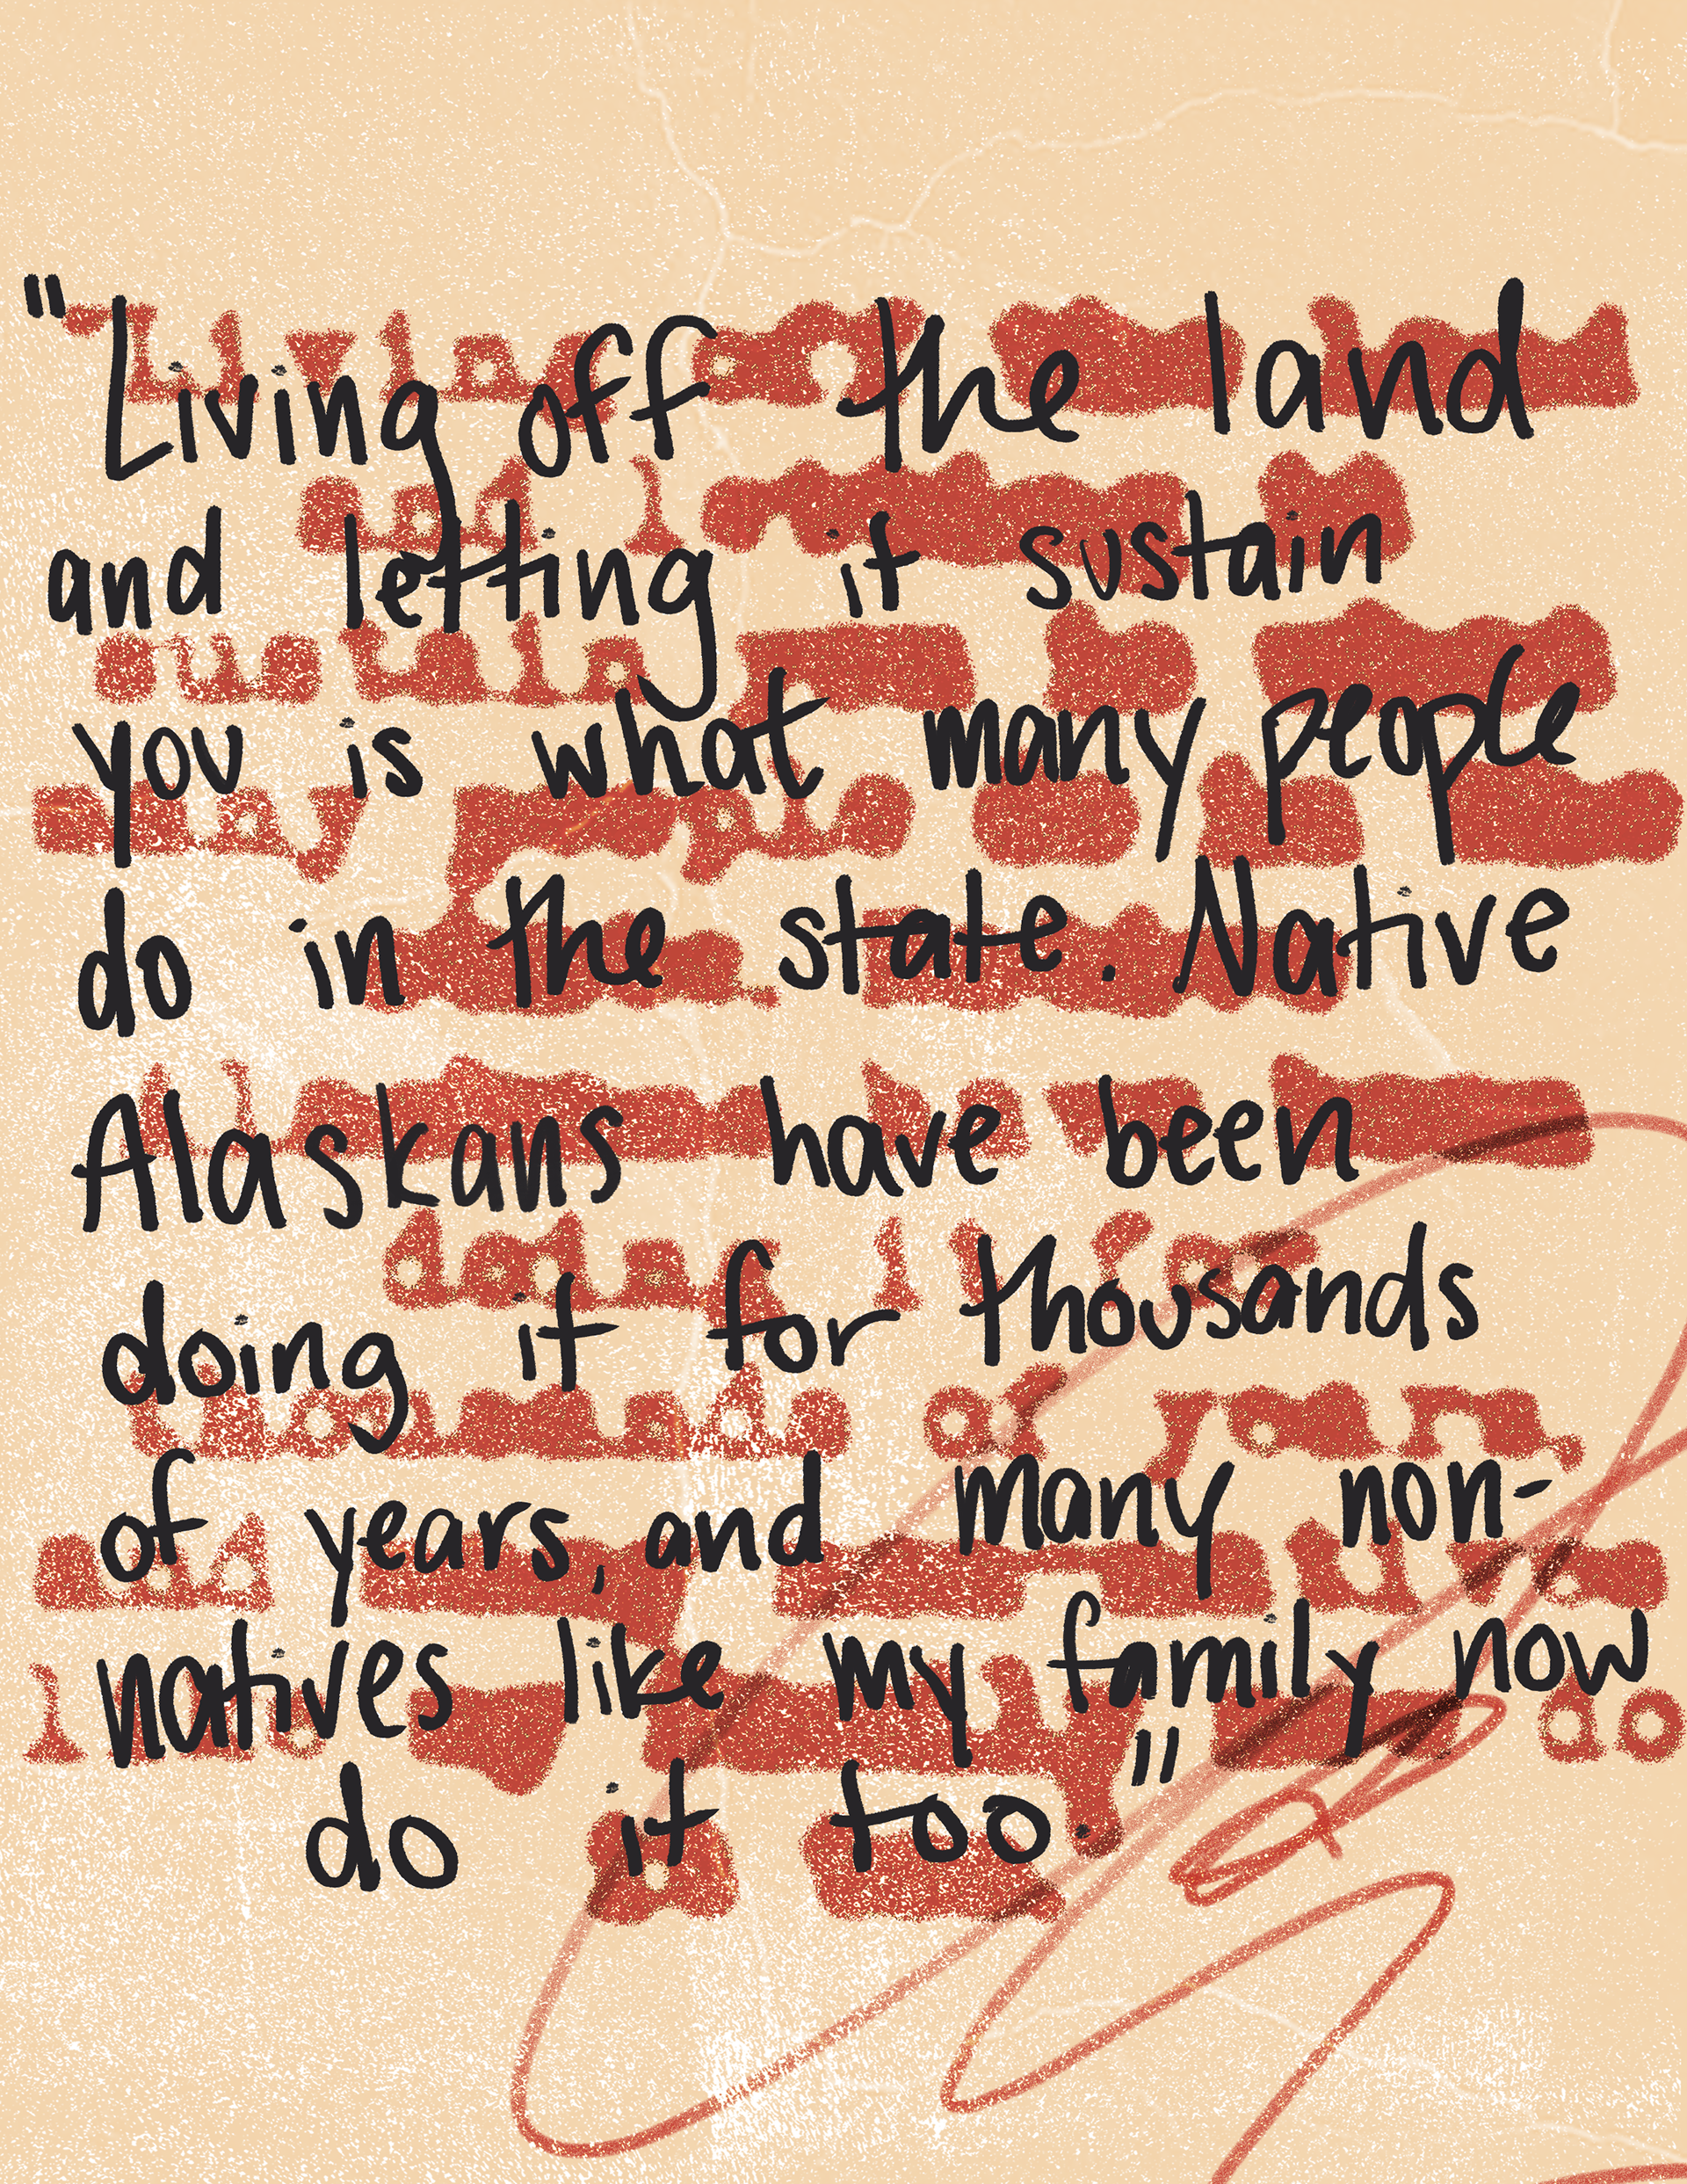 "Living off the land
and letting it sustain
you is what many people
do in the state. Native
Alaskans have been
doing it for thousands
of years, and many non-
natives like my family now
do it too."